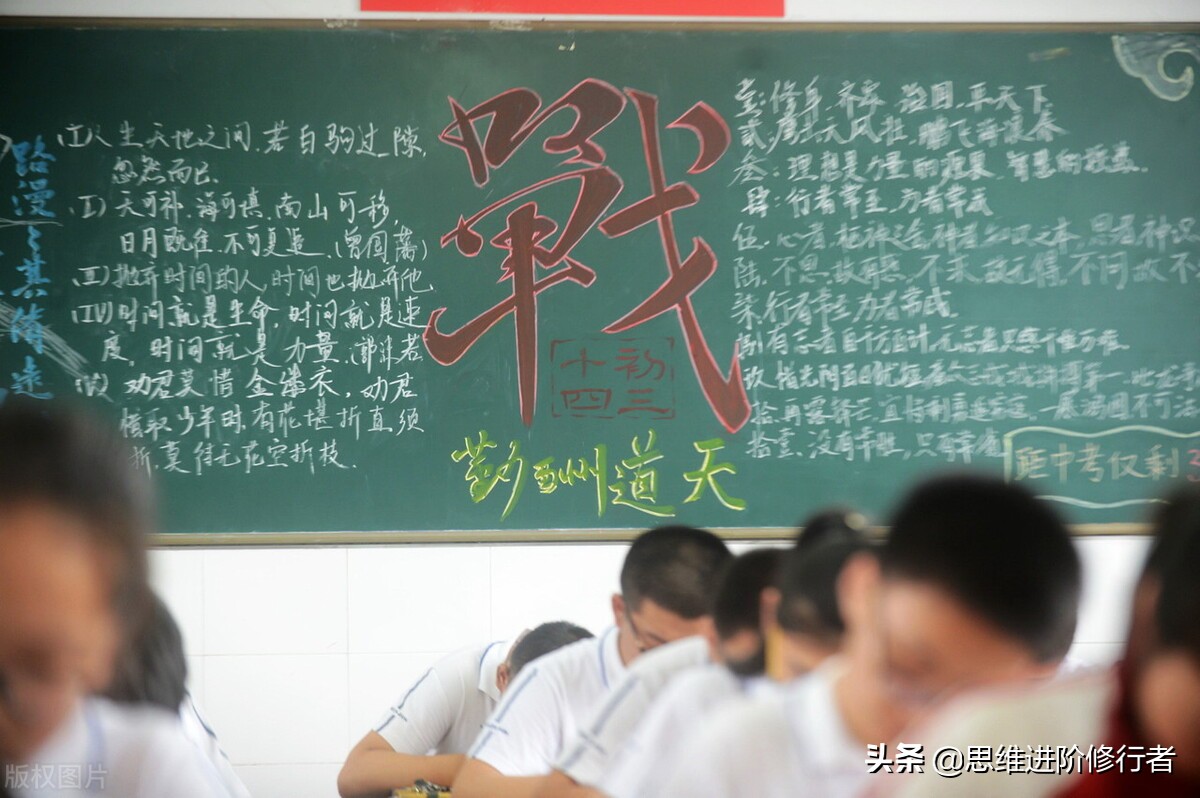 路漫漫其修远
(I)人生天地之间,若白驹过隙,
忽然而已.
(II)天可补,海可填,南山可移,
日月既往,不可复追.(曾国藩)
(III)抛弃时间的人,时间也抛弃他.
(IV)时间就是生命,时间就是速
度,时间就是力量.(郭沫若)
(V)劝君莫惜金缕衣,劝君
惜取少年时,有花堪折直须
折,莫待无花空折枝.
戰
初三
十四
勤酬道天
壹:修身,齐家,治国,平天下
叁:理想是力量的源泉、智慧的
肆:行者常至,为者常成
不思,故有惑,不求,故无得,不问,故不
柒.行者常至为者常成
捌有志者自有千方百计无志者只感千难万难
拾壹.没有幸胜,只有
距中考仅剩3
版权图片
头条 @思维进阶修行者